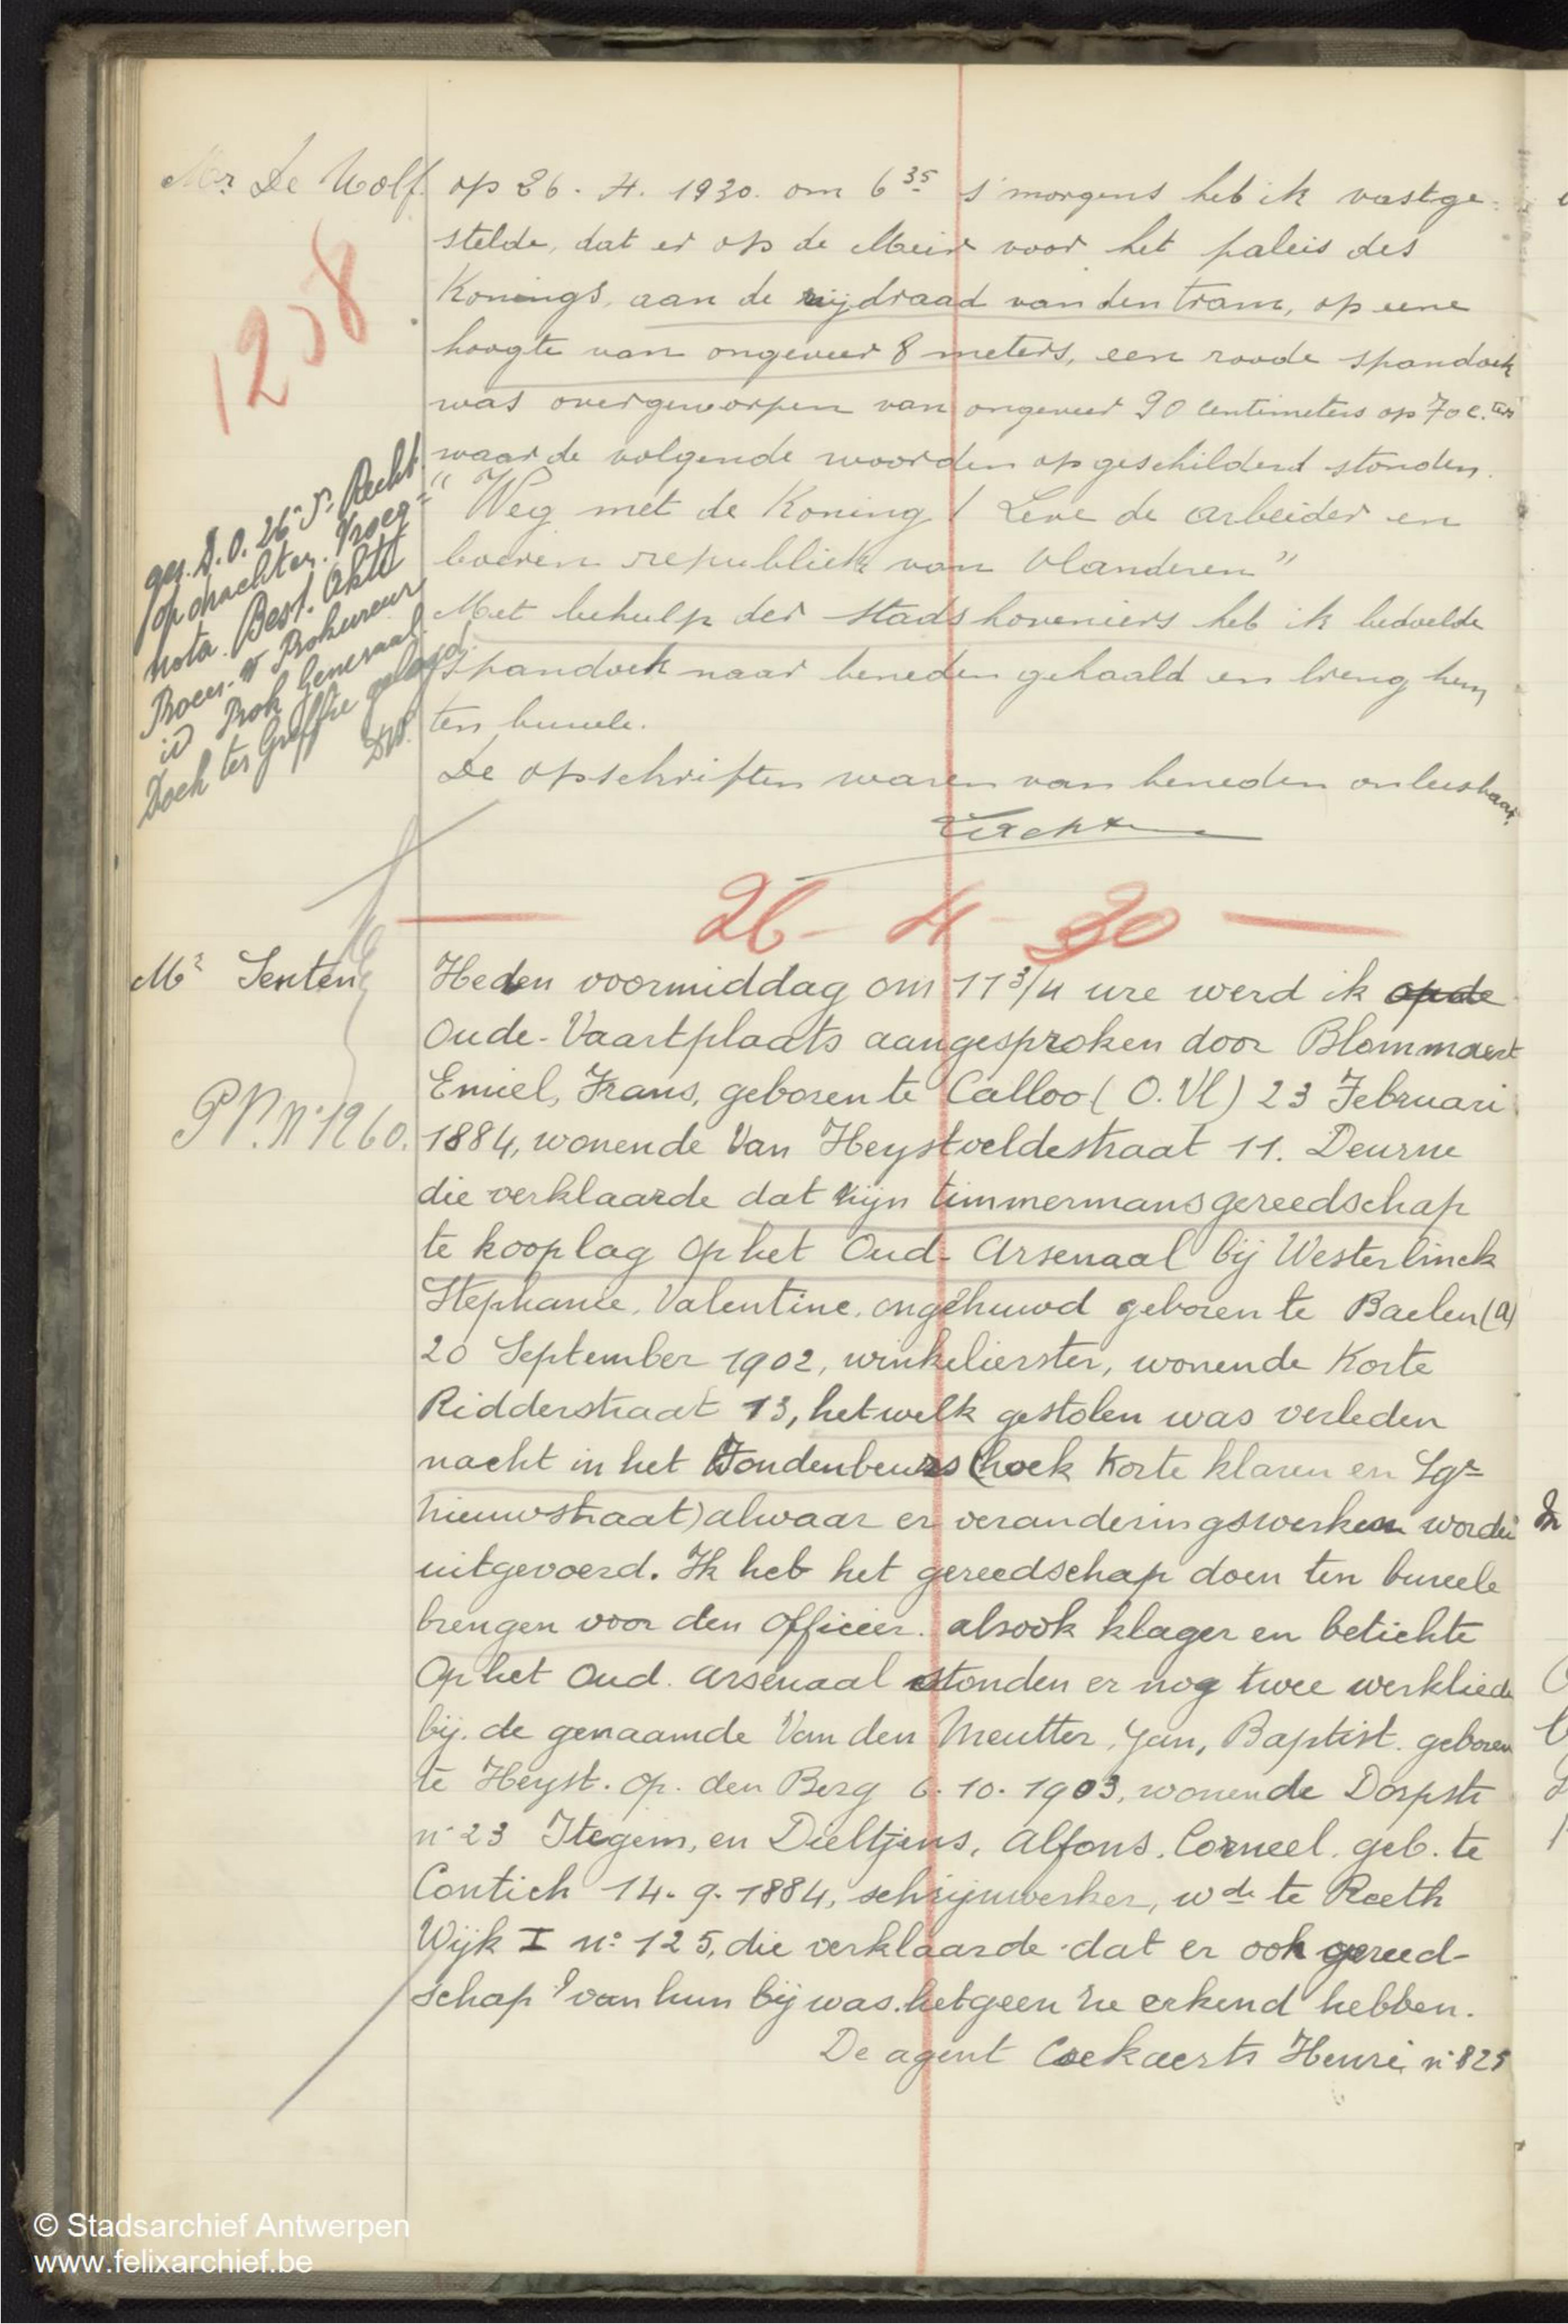 Mr De Wolf.
1258
op 26. 4. 1930. om 6 35 s'morgens heb ik vastge-
stelde, dat er op de Meir voor het paleis des
Konings, aan de rijdraad van den tram, op eene
hoogte van ongeveer 8 meters, een roode spandoek
was overgeworpen van ongeveer 90 centimeters op 70 c.ters
waar de volgende woorden op geschilderd stonden.
"Weg met de Koning! Leve de arbeider en
boeren republiek van Vlanderen"
Met behulp der stadshoveniers heb ik bedoelde
spandoek naar beneden gehaald en breng hem
ten bureele.
De opschriften waren van beneden onleesbaar.
ges. D.O. 26e S. Recht
opdrachten. Vroeg-
nota. Best. Akte
Proces. v Prokureur
id Prok Generaal.
Doek ter Greffie gelegd.
DW.
26 - 4 - 30
Mr Senten
PV. No 1260.
Heden voormiddag om 11 3/4 ure werd ik op de
Oude-Vaartplaats aangesproken door Blommaert
Emiel, Frans, geboren te Calloo (O. Vl) 23 Februari
1884, wonende Van Heystveldestraat 11. Deurne
die verklaarde dat zijn timmermansgereedschap
te koop lag op het Oud-Arsenaal bij Westerlinck
Stephanie, Valentine, ongehuwd geboren te Baelen (A)
20 September 1902, winkelierster, wonende Korte
Ridderstraat 13, hetwelk gestolen was verleden
nacht in het Hondenbeurs (hoek Korte klaren en Lge
nieuwstraat) alwaar er veranderingswerken worden
uitgevoerd. Ik heb het gereedschap doen ten bureele
brengen voor den officier. alsook klager en betichte
Op het Oud. Arsenaal stonden er nog twee werklieden
bij. de genaamde Van den Meutter, Jan, Baptist. geboren
te Heyst. op. den Berg 6. 10. 1903, wonende Dorpstr
no 23 Itegem, en Dieltjens, Alfons. Corneel. geb. te
Contich 14. 9. 1884, schrijnwerker, wde te Reeth
Wijk I no 125, die verklaarde dat er ook gereed-
schap van hun bij was. hetgeen ze erkend hebben.
De agent Coekaerts Henri no 825
© Stadsarchief Antwerpen
www.felixarchief.be